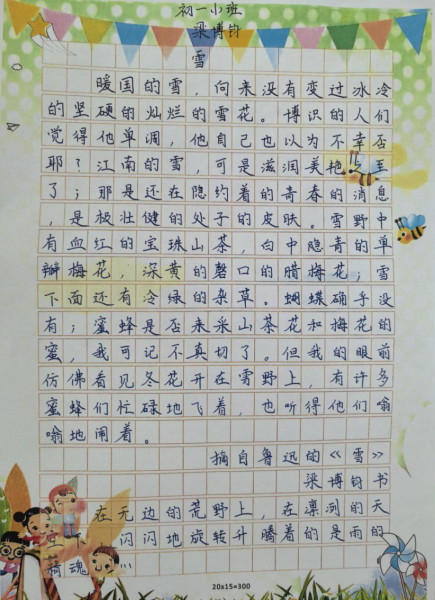 初一小班
梁博钧
雪
暖国的雪，向来没有变过冰冷
的坚硬的灿烂的雪花。博识的人们
觉得他单调，他自己也以为不幸否
耶？江南的雪，可是滋润美艳之至
了；那是还在隐约着的青春的消息
，是极壮健的处子的皮肤。雪野中
有血红的宝珠山茶，白中隐青的单
瓣梅花，深黄的磬口的腊梅花；雪
下面还有冷绿的杂草。蝴蝶确乎没
有；蜜蜂是否来采山茶花和梅花的
蜜，我可记不真切了。但我的眼前
仿佛看见冬花开在雪野上，有许多
蜜蜂们忙碌地飞着，也听得他们嗡
嗡地闹着。
摘自鲁迅的《雪》
梁博钧书
在无边的荒野上，在凛冽的天
宇下，闪闪地旋转升腾着的是雨的
精魂……
20x15=300